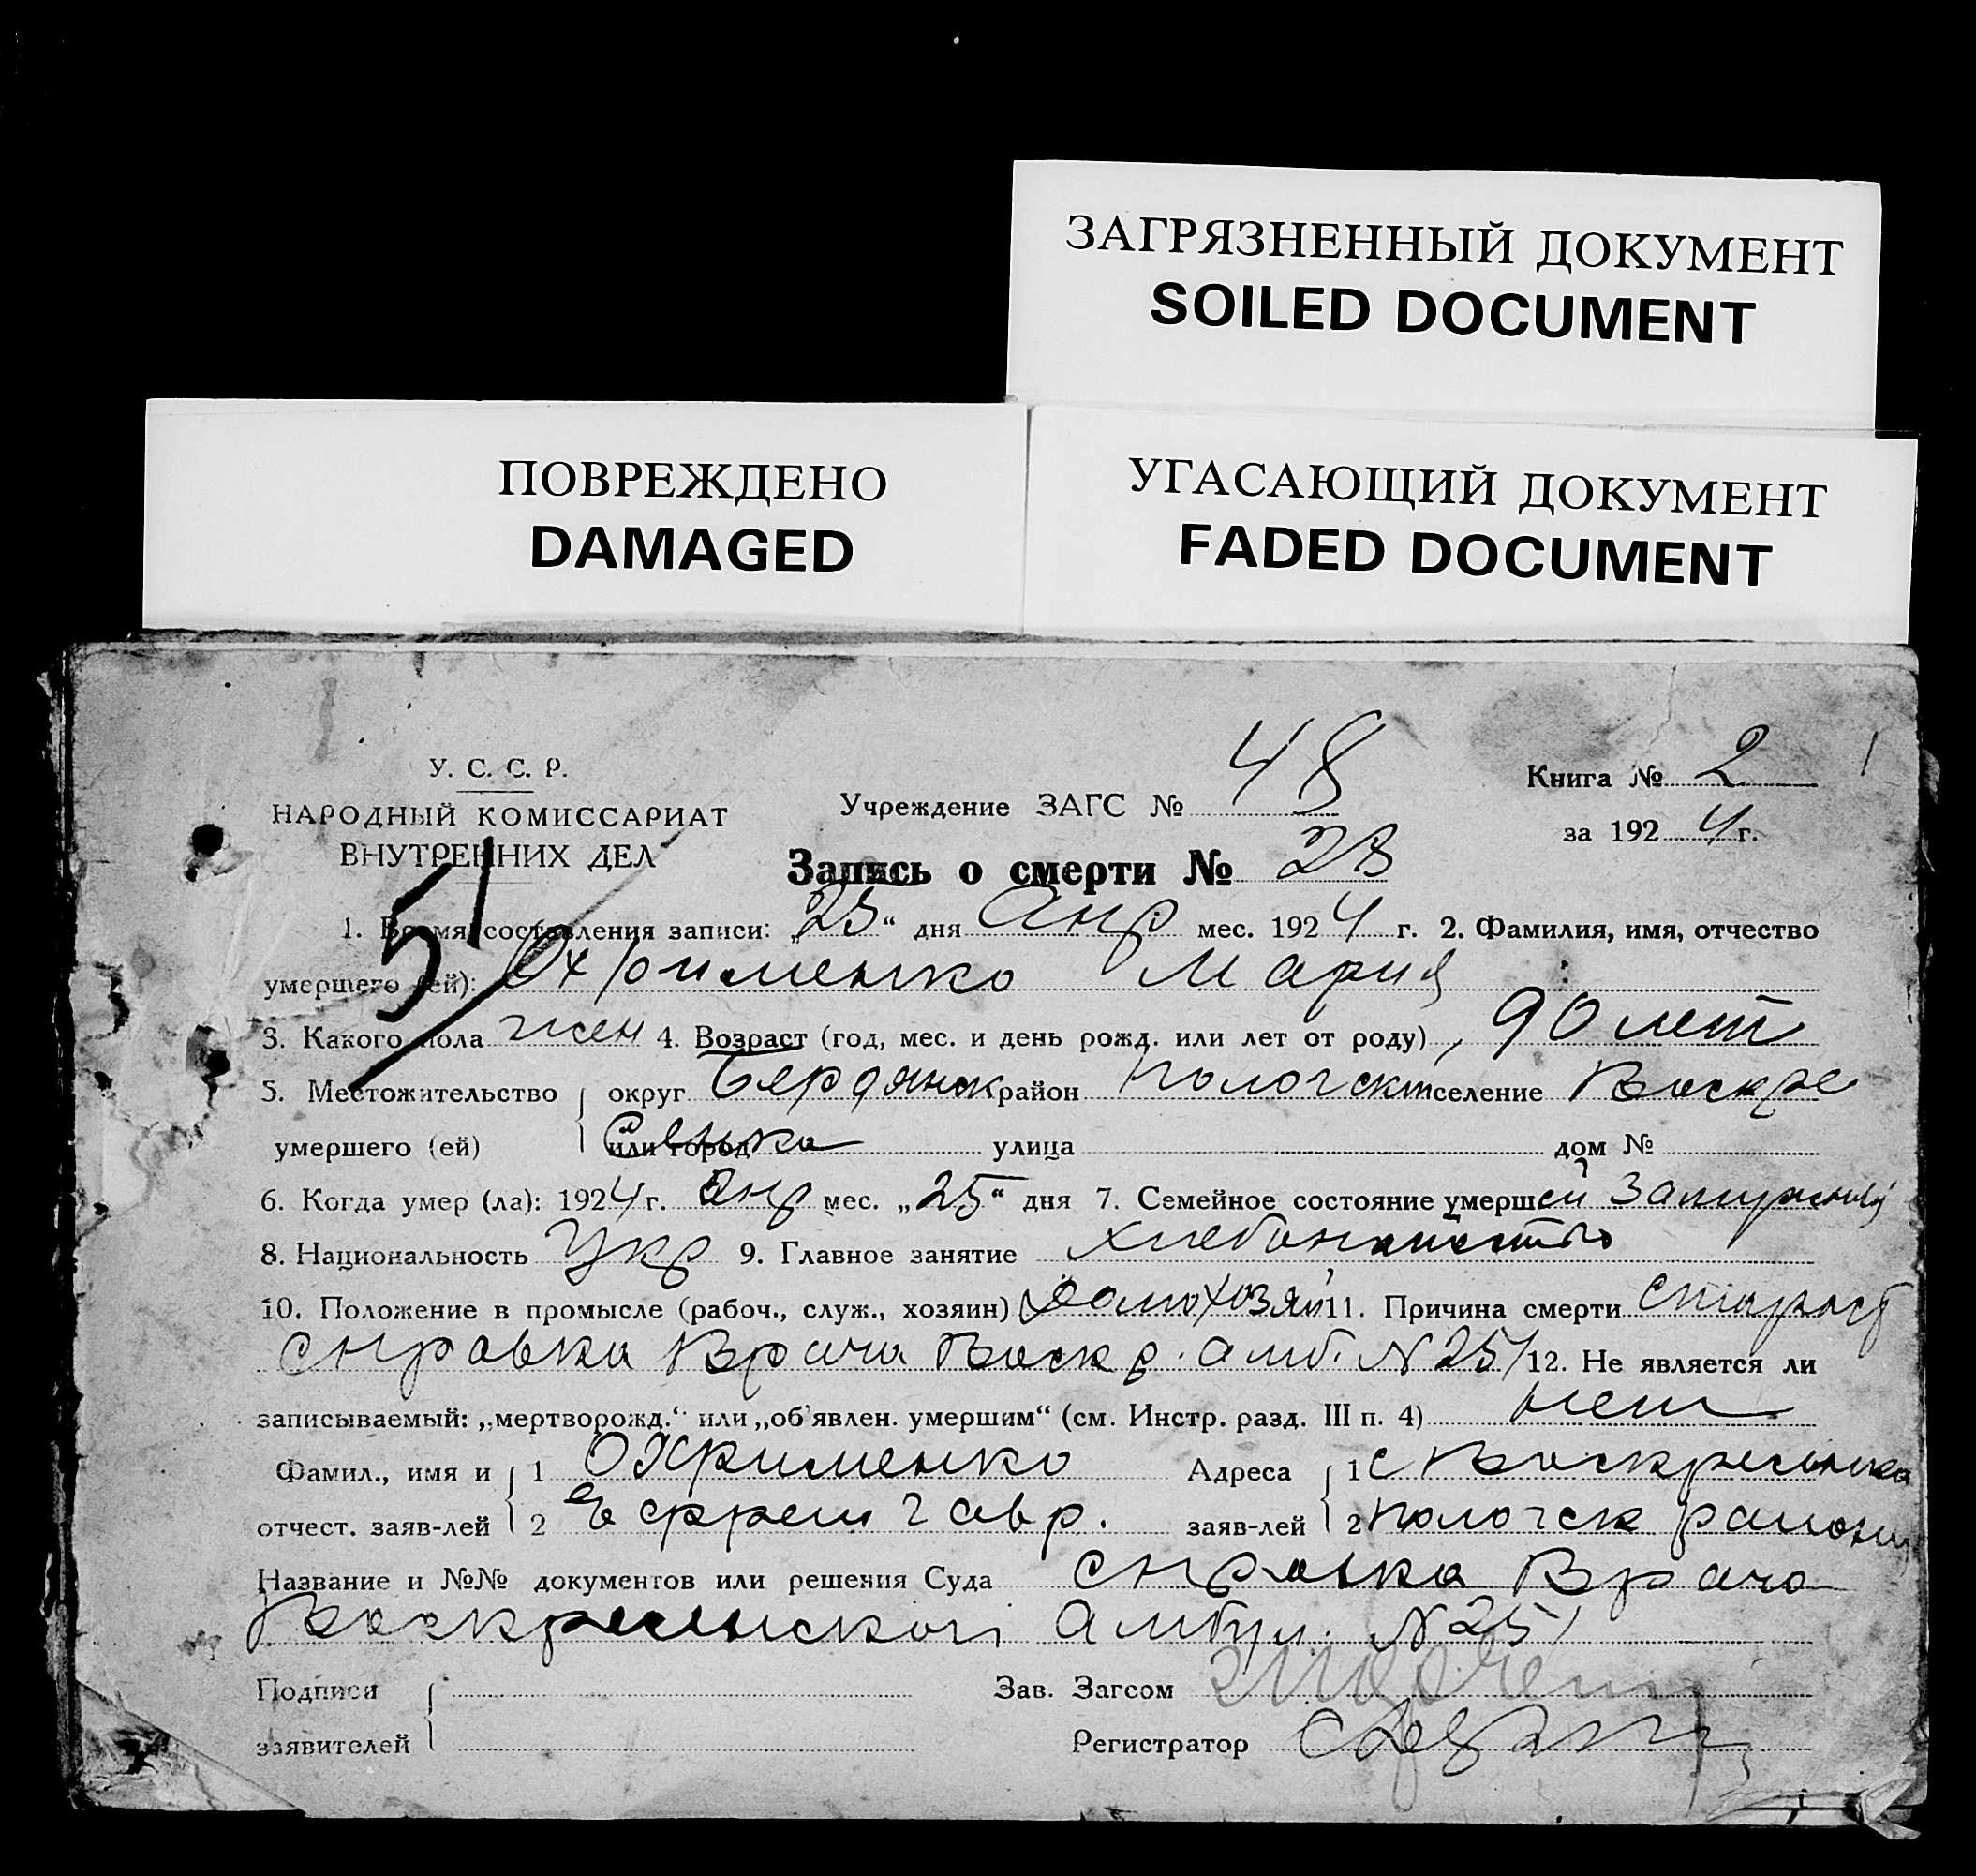 ЗАГРЯЗНЕННЫЙ ДОКУМЕНТ
SOILED DOCUMENT
ПОВРЕЖДЕНО
DAMAGED
УГАСАЮЩИЙ ДОКУМЕНТ
FADED DOCUMENT
У. С. С. Р.
НАРОДНЫЙ КОМИССАРИАТ
ВНУТРЕННИХ ДЕЛ
51
Учреждение ЗАГС № 48
Книга № 2
за 1924 г.
Запись о смерти № 28
1. Время составления записи: „25“ дня Апр мес. 1924 г. 2. Фамилия, имя, отчество
умершего (ей): Охрименко Мария
3. Какого пола жен 4. Возраст (год, мес. и день рожд. или лет от роду) 90 лет
5. Местожительство округ Бердянск район Пологский селение Воскре
умершего (ей) или город сенька улица дом №
6. Когда умер (ла): 1924 г. Апр мес. „25“ дня 7. Семейное состояние умершей Замужний
8. Национальность Укр 9. Главное занятие хлебопашество
10. Положение в промысле (рабоч., служ., хозяин) 11. Причина смерти Старость
Справка Врача Воскр. амб. № 25/ 12. Не является ли
записываемый: „мертворожд.“ или „об'явлен. умершим“ (см. Инстр. разд. III п. 4) нет
Фамил., имя и 1 Охрименко Адреса 1 с Воскресенька
отчест. заяв-лей 2 Ефрем Гавр. заяв-лей 2 Пологск района
Название и №№ документов или решения Суда Справка Врача
Воскресенской Амбул. № 25/
Подписи Зав. Загсом
заявителей Регистратор